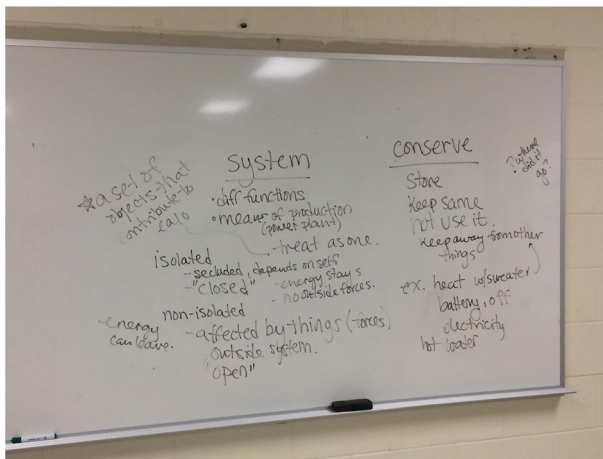 ☆a set of
objects that
contribute to
calc
system
•diff functions
•means of production
(power plant)
-treat as one.
isolated
-secluded, depends on self
-"closed"
-energy stays
-no outside forces.
non-isolated
-energy
can leave.
-affected by things (forces)
outside system.
"open"
conserve
Store
Keep same
not use it.
Keep away from other
things
ex. heat w/sweater
battery, off
electricity
hot water
? where
did it
go?